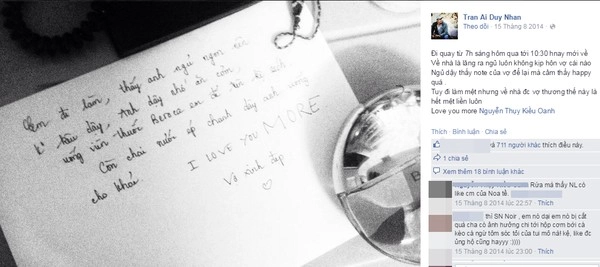 Em đi làm, thấy anh ngủ ngon nên
k' kêu dậy, Anh dậy nhớ ăn cơm,
uống viên thuốc Beroca em để
Còn chai nước ép chanh dây anh uống
cho khoẻ.
I LOVE YOU MORE
Vợ xinh đẹp
Tran Ai Duy Nhan
Theo dõi · 15 Tháng 8 2014 ·
Đi quay từ 7h sáng hôm qua tới 10:30 hnay mới về
Về nhà là lăng ra ngủ luôn không kịp hôn vợ cái nào
Ngủ dậy thấy note của vợ để lại mà cảm thấy happy
quá .
Tuy đi làm mệt nhưng về nhà đc vợ thương thế này là
hết mệt liền luôn
Love you more Nguyễn Thụy Kiều Oanh
Thích · Bình luận · Chia sẻ
và 711 người khác thích điều này.
1 chia sẻ
Xem thêm 18 bình luận khác
Rứa mà thấy NL có
like cm của Noa tề.
15 Tháng 8 2014 lúc 22:57 · Thích
thì SN Noir , em nó dại em nó bị cắt
quả cha có ảnh hưởng chi tới hộp cơm bới cá
kẻo cà ngừ tôm sóc tôi của tui mô nả! kệ, like đc
ủng hộ cũng hayyy :))))
15 Tháng 8 2014 lúc 23:00 · Thích